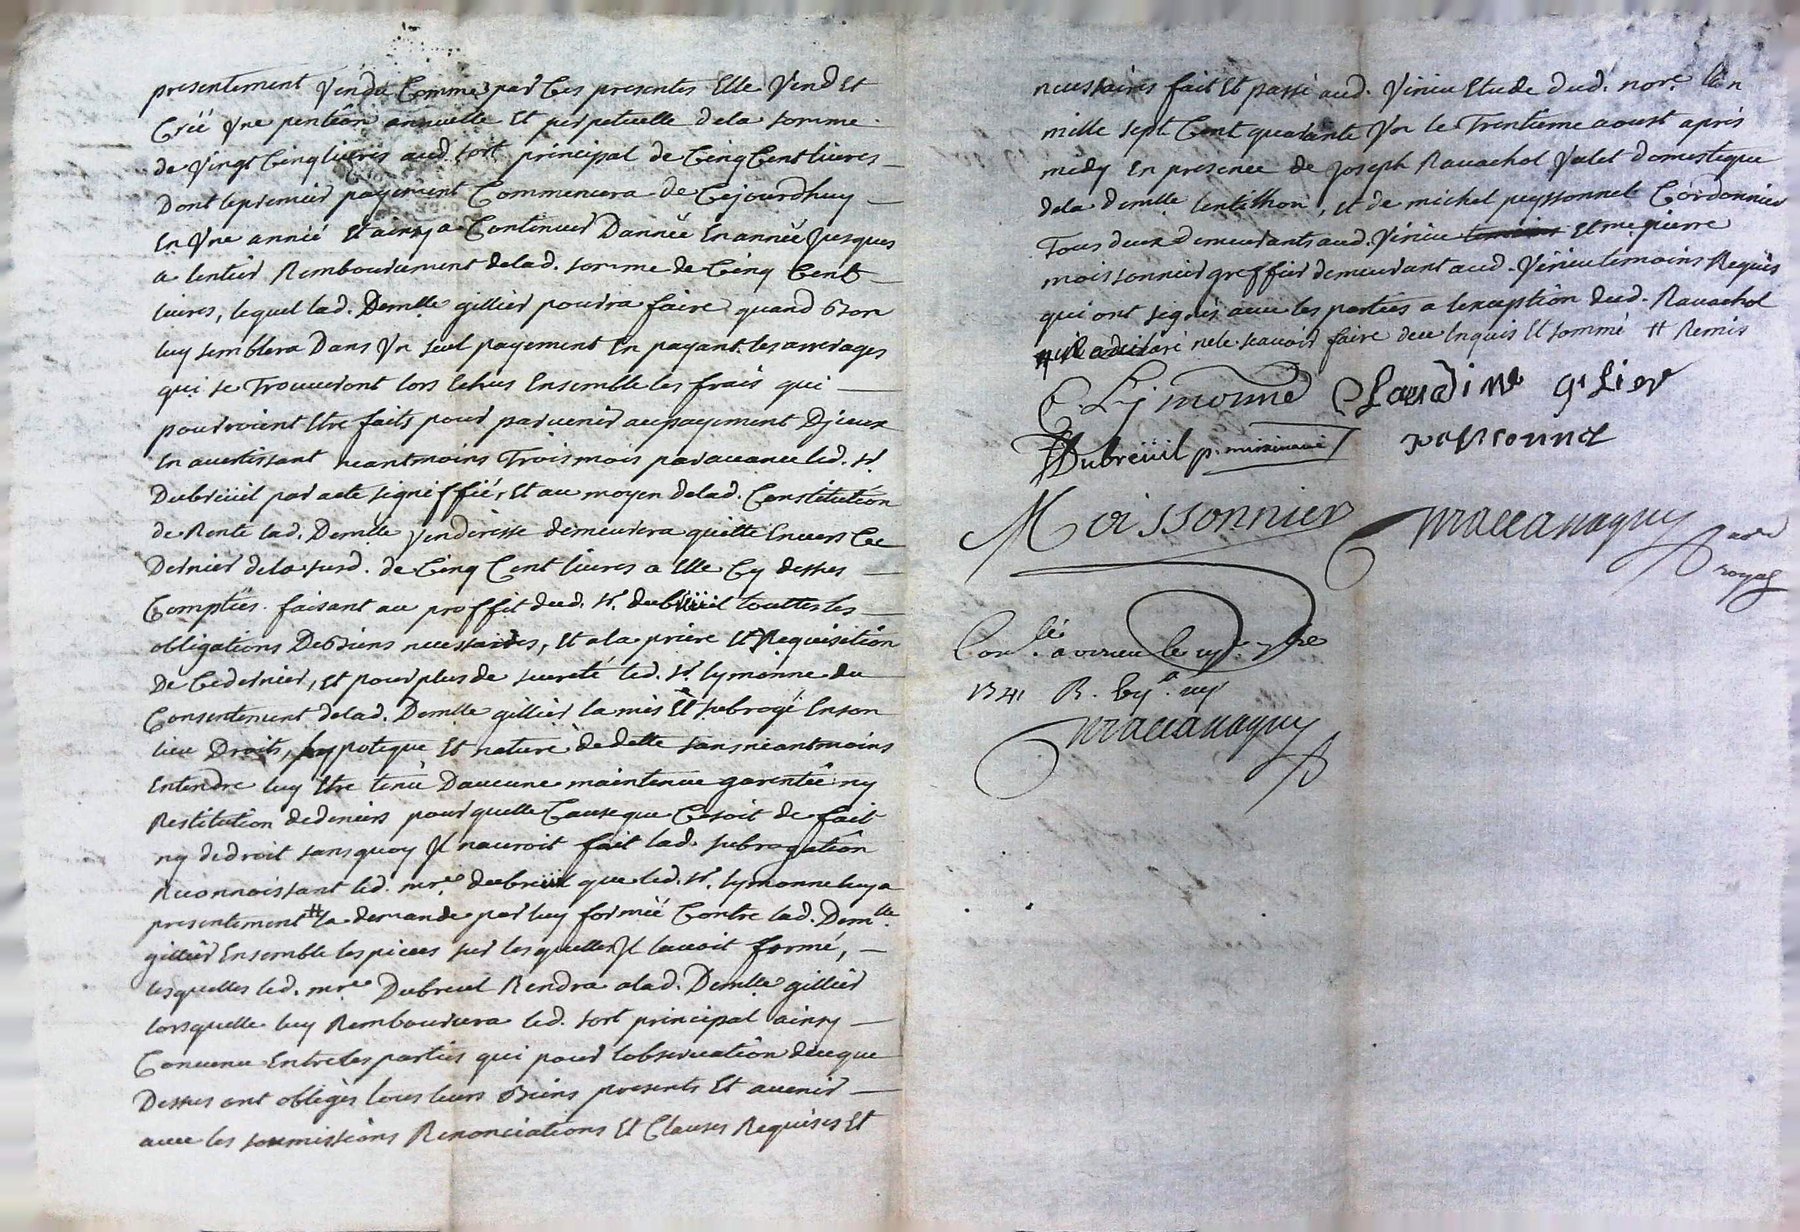 presentement Vendu Comme par Ces presentes Elle Vend Et
Créé Vne pention annuelle Et perpetuelle dela somme
de Vingt Cinq livres aud. sort principal de Cinq Cent livres
Dont le premier payement Commencera de Cejourdhuy
En Vne année Et ainsy a Continuer Dannée En année Jusques
a lentier Remboursement delad. somme de Cinq Cent
livres, lequel lad. Demlle gillier pourra faire quand Bon
luy semblera Dans Vn seul payement En payant les arrerages
qui se Trouveront lors Echus Ensemble les frais qui
pourroient Etre faits pour parvenir au payement Djceux
En avertissant neantmoins Trois mois par avance led. sr.
Dubreüil par acte signiffié, Et au moyen delad. Constitution
de Rente lad. Demlle Venderesse demeurera quitte Envers Ce
Dernier dela susd. de Cinq Cent livres a Elle Cy dessus
Comptées faisant au proffit dud. sr. dubreüil touttes les
obligations De Biens necessaires, Et a la priere Et Requisition
De Cedernier, Et pour plus de sureté led. sr. lymonne du
Consentement delad. Demlle gillier la mis Et subrogé En son
lieu Droits, hypoteque Et nature de dette sans neantmoins
Entendre luy Etre tenu Daucune maintenue garentie ny
Restitution de deniers pour quelle Cause que Ce soit de fait
ny de droit sans quoy Jl nauroit fait lad. subrogation
Reconnoissant led. mre. dubreüil que led. sr. lymonne luy a
presentement # la demande par luy formée Contre lad. Demlle
gillier Ensemble les pieces sur lesquelles Jl lavoit formé,
lesquelles led. mre Dubreul Rendra a lad. Demlle gillier
lorsquelle luy Remboursera led. sort principal ainsy
Convenu Entre les parties qui pour lobservation de ce que
Dessus ont obligés tous leurs Biens presents Et avenir
avec les soumissions Renonciations Et Clauses Requises Et
necessaires fait Et passé aud. Virieu Etude dud. nore. lan
mille sept Cent quarante Vn le Trentieme aoust aprés
midy En presence de Joseph Ravachol Valet domestique
dela demlle lentillon, Et de michel peyssonnel Cordonnier
Tous deux demeurants aud. Virieu Et me pierre
moissonnier greffier demeurant aud. Virieu temoins Requis
qui ont signés avec les parties a lexception dud. Ravachol
qui a declaré ne le scavoir faire de ce Enquis Et sommé # Remis
Lymonne Claudine gilier
Dubreüil peyssonnel
Moissonnier
royal
Conlé. a virieu le 7bre
1741 R.